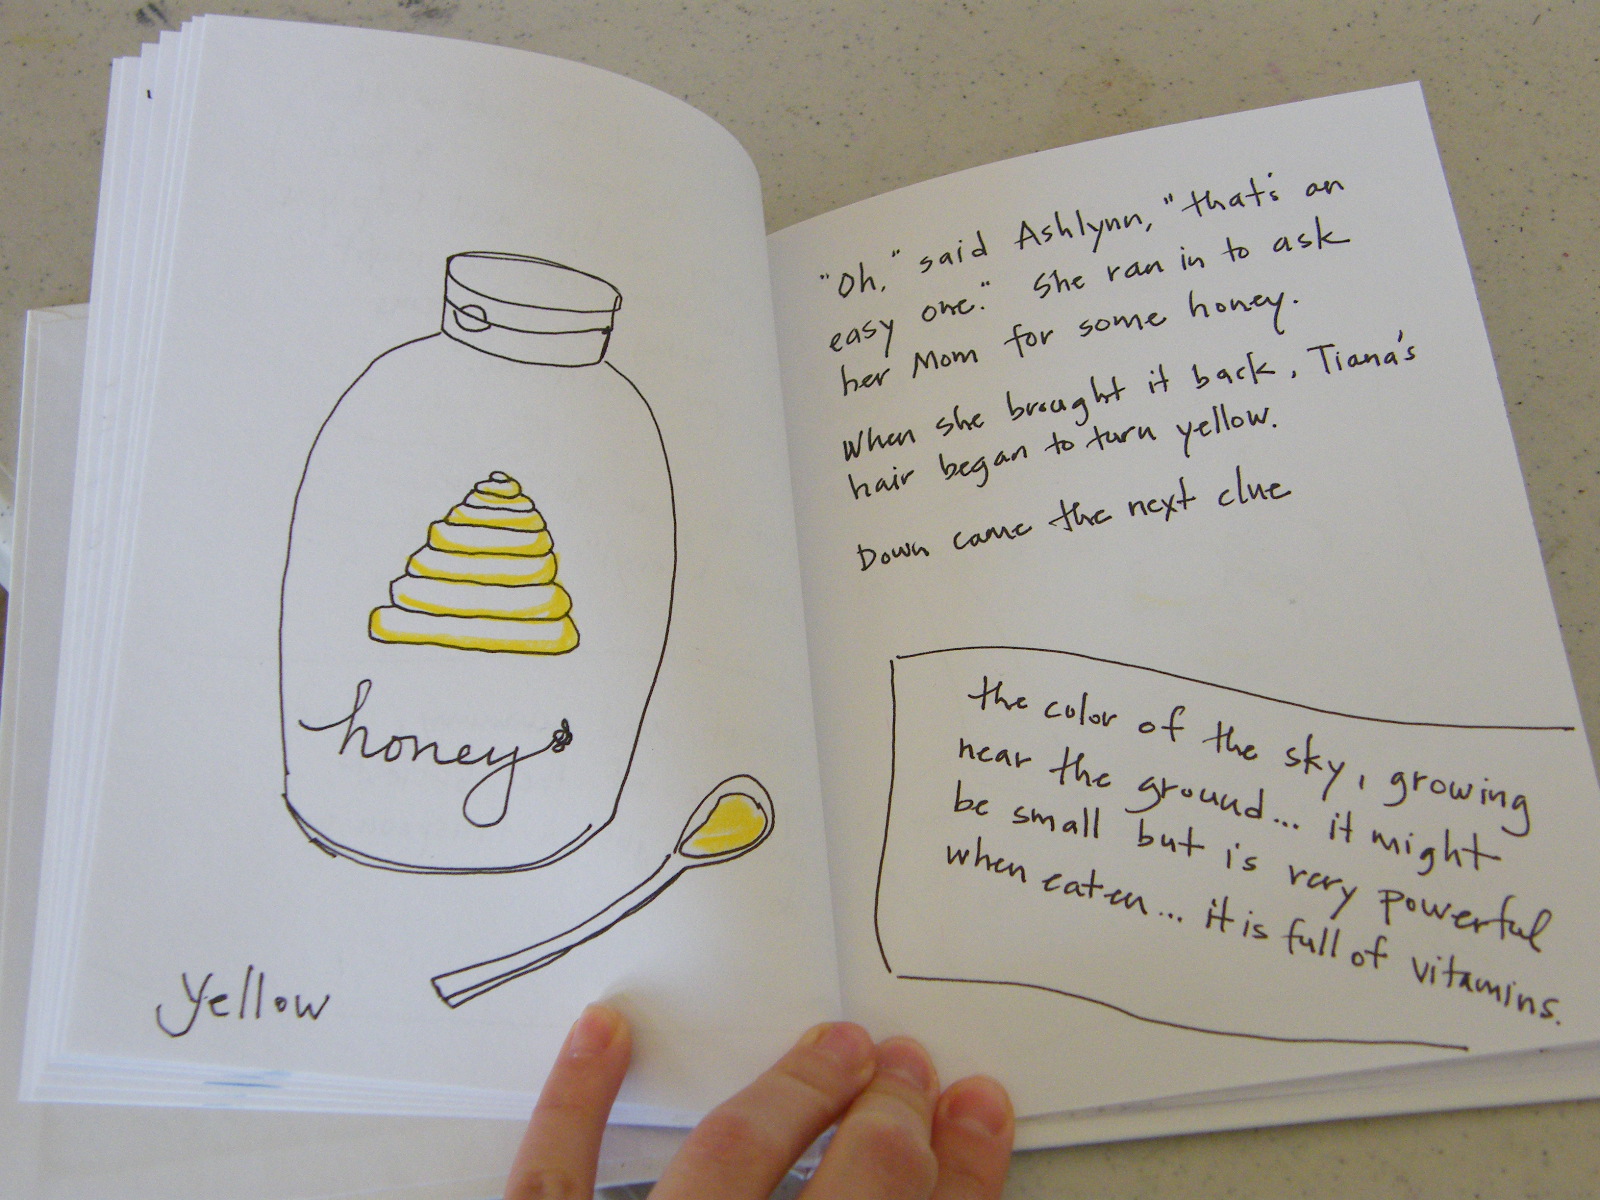 honey
yellow
"Oh," said Ashlynn, "that's an
easy one." She ran in to ask
her Mom for some honey.
When she brought it back, Tiana's
hair began to turn yellow.
Down came the next clue
the color of the sky, growing
near the ground... it might
be small but is very powerful
when eaten... it is full of vitamins.